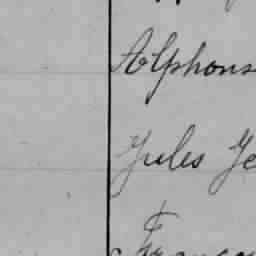 Alphons
Jules Je